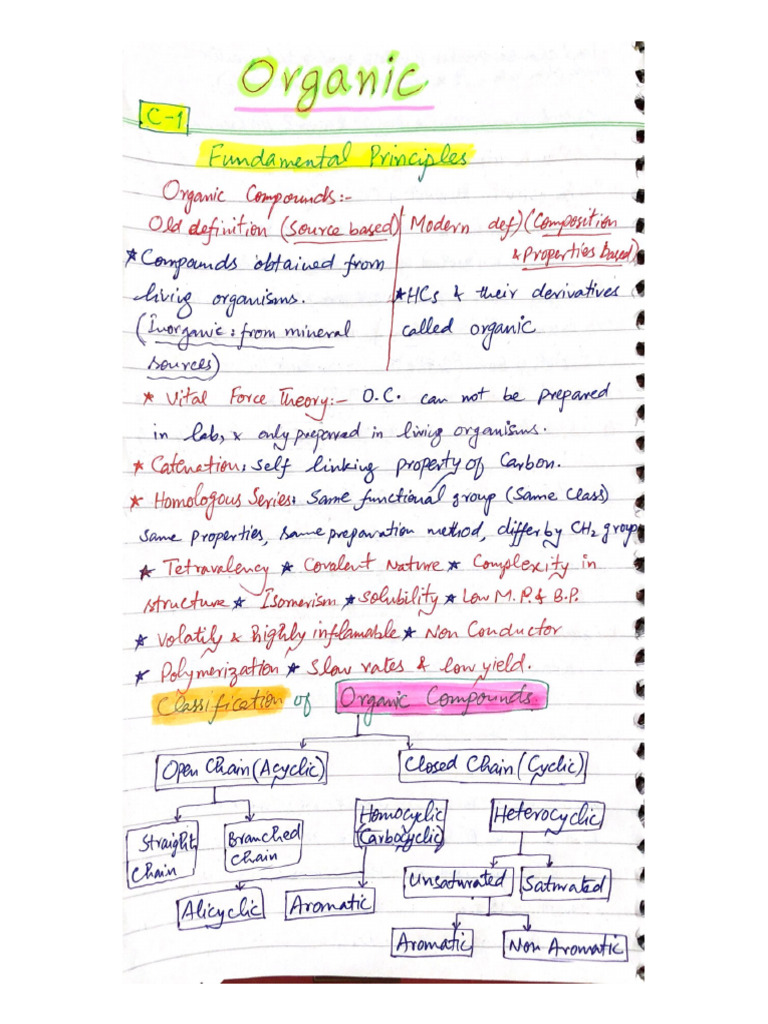 Organic
C-1
Fundamental Principles
Organic Compounds:-
Old definition (Source based)
★ Compounds obtained from
living organisms.
(Inorganic: from mineral
sources)
Modern def) (Composition
& Properties Based)
★ HCs & their derivatives
called organic
★ Vital Force Theory:- O.C. can not be prepared
in lab, x only preparred in living organisms.
★ Catenation: Self linking property of Carbon.
★ Homologous Series: Same functional group (Same Class)
same properties, same preparation method, differ by CH2 group
★ Tetravalency ★ Covalent Nature ★ Complexity in
structure ★ Isomerism ★ Solubility ★ Low M.P. & B.P.
★ Volatily & highly inflamable ★ Non Conductor
★ Polymerization ★ Slow rates & low yield.
Classification of Organic Compounds
Open Chain (Acyclic)
Closed Chain (Cyclic)
Straight
Chain
Branched
Chain
Homocyclic
(Carbocyclic)
Heterocyclic
Alicyclic
Aromatic
Unsaturated
Saturated
Aromatic
Non Aromatic